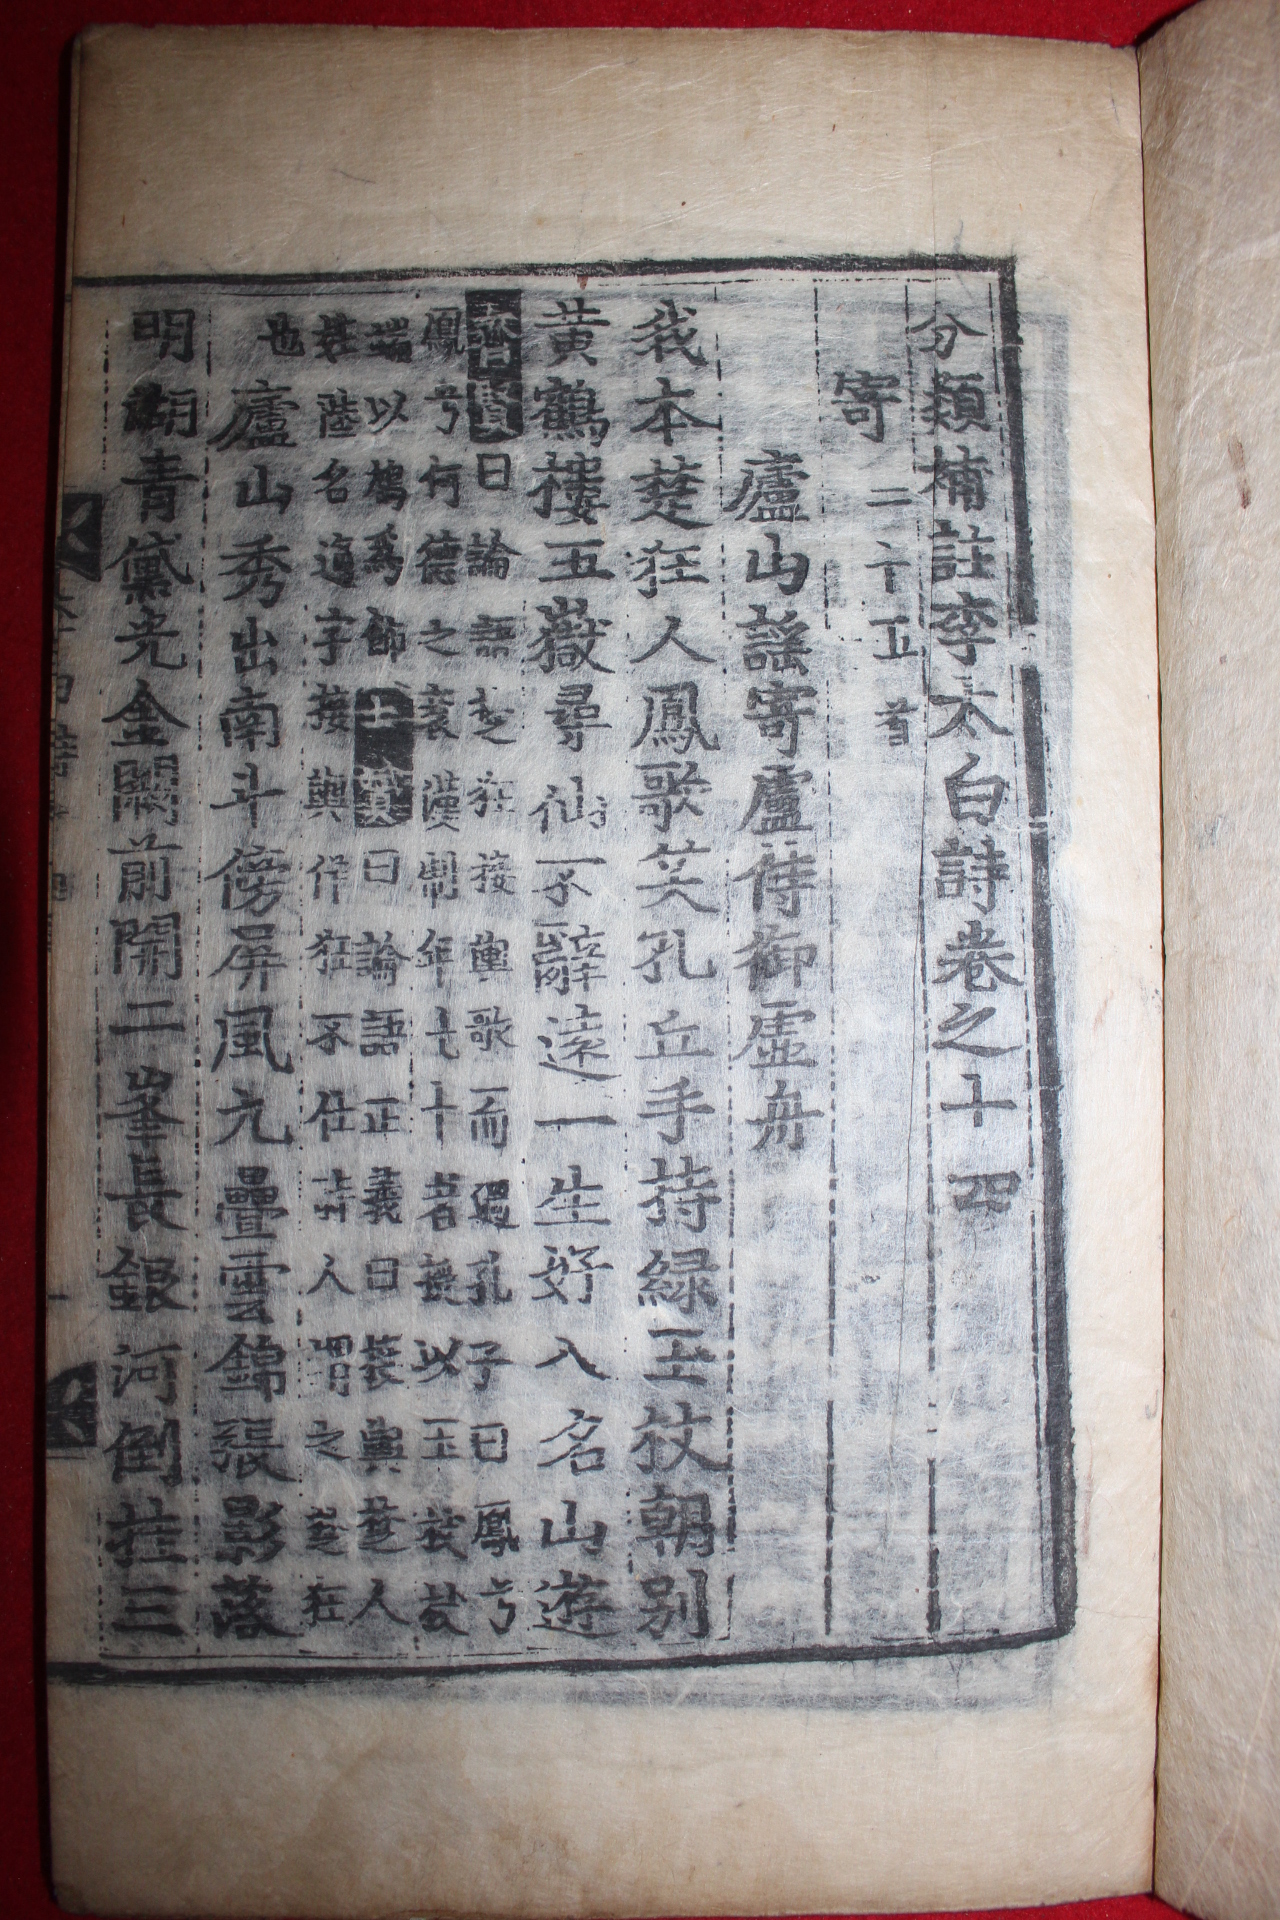 分類補註李太白詩卷之十四
寄 二十五首
廬山謠寄盧侍御虛舟
我本楚狂人鳳歌笑孔丘手持綠玉杖朝別
黃鶴樓五嶽尋仙不辭遠一生好入名山遊
齊賢曰論語楚狂接輿歌而過孔子曰鳳兮
鳳兮何德之衰漢制年七十者授以玉杖杖
端以鳩爲飾士贇曰論語正義曰接輿楚人
姓陸名通字接輿佯狂不仕時人謂之楚狂
也
廬山秀出南斗傍屛風九疊雲錦張影落
明湖青黛光金闕前開二峯長銀河倒挂三